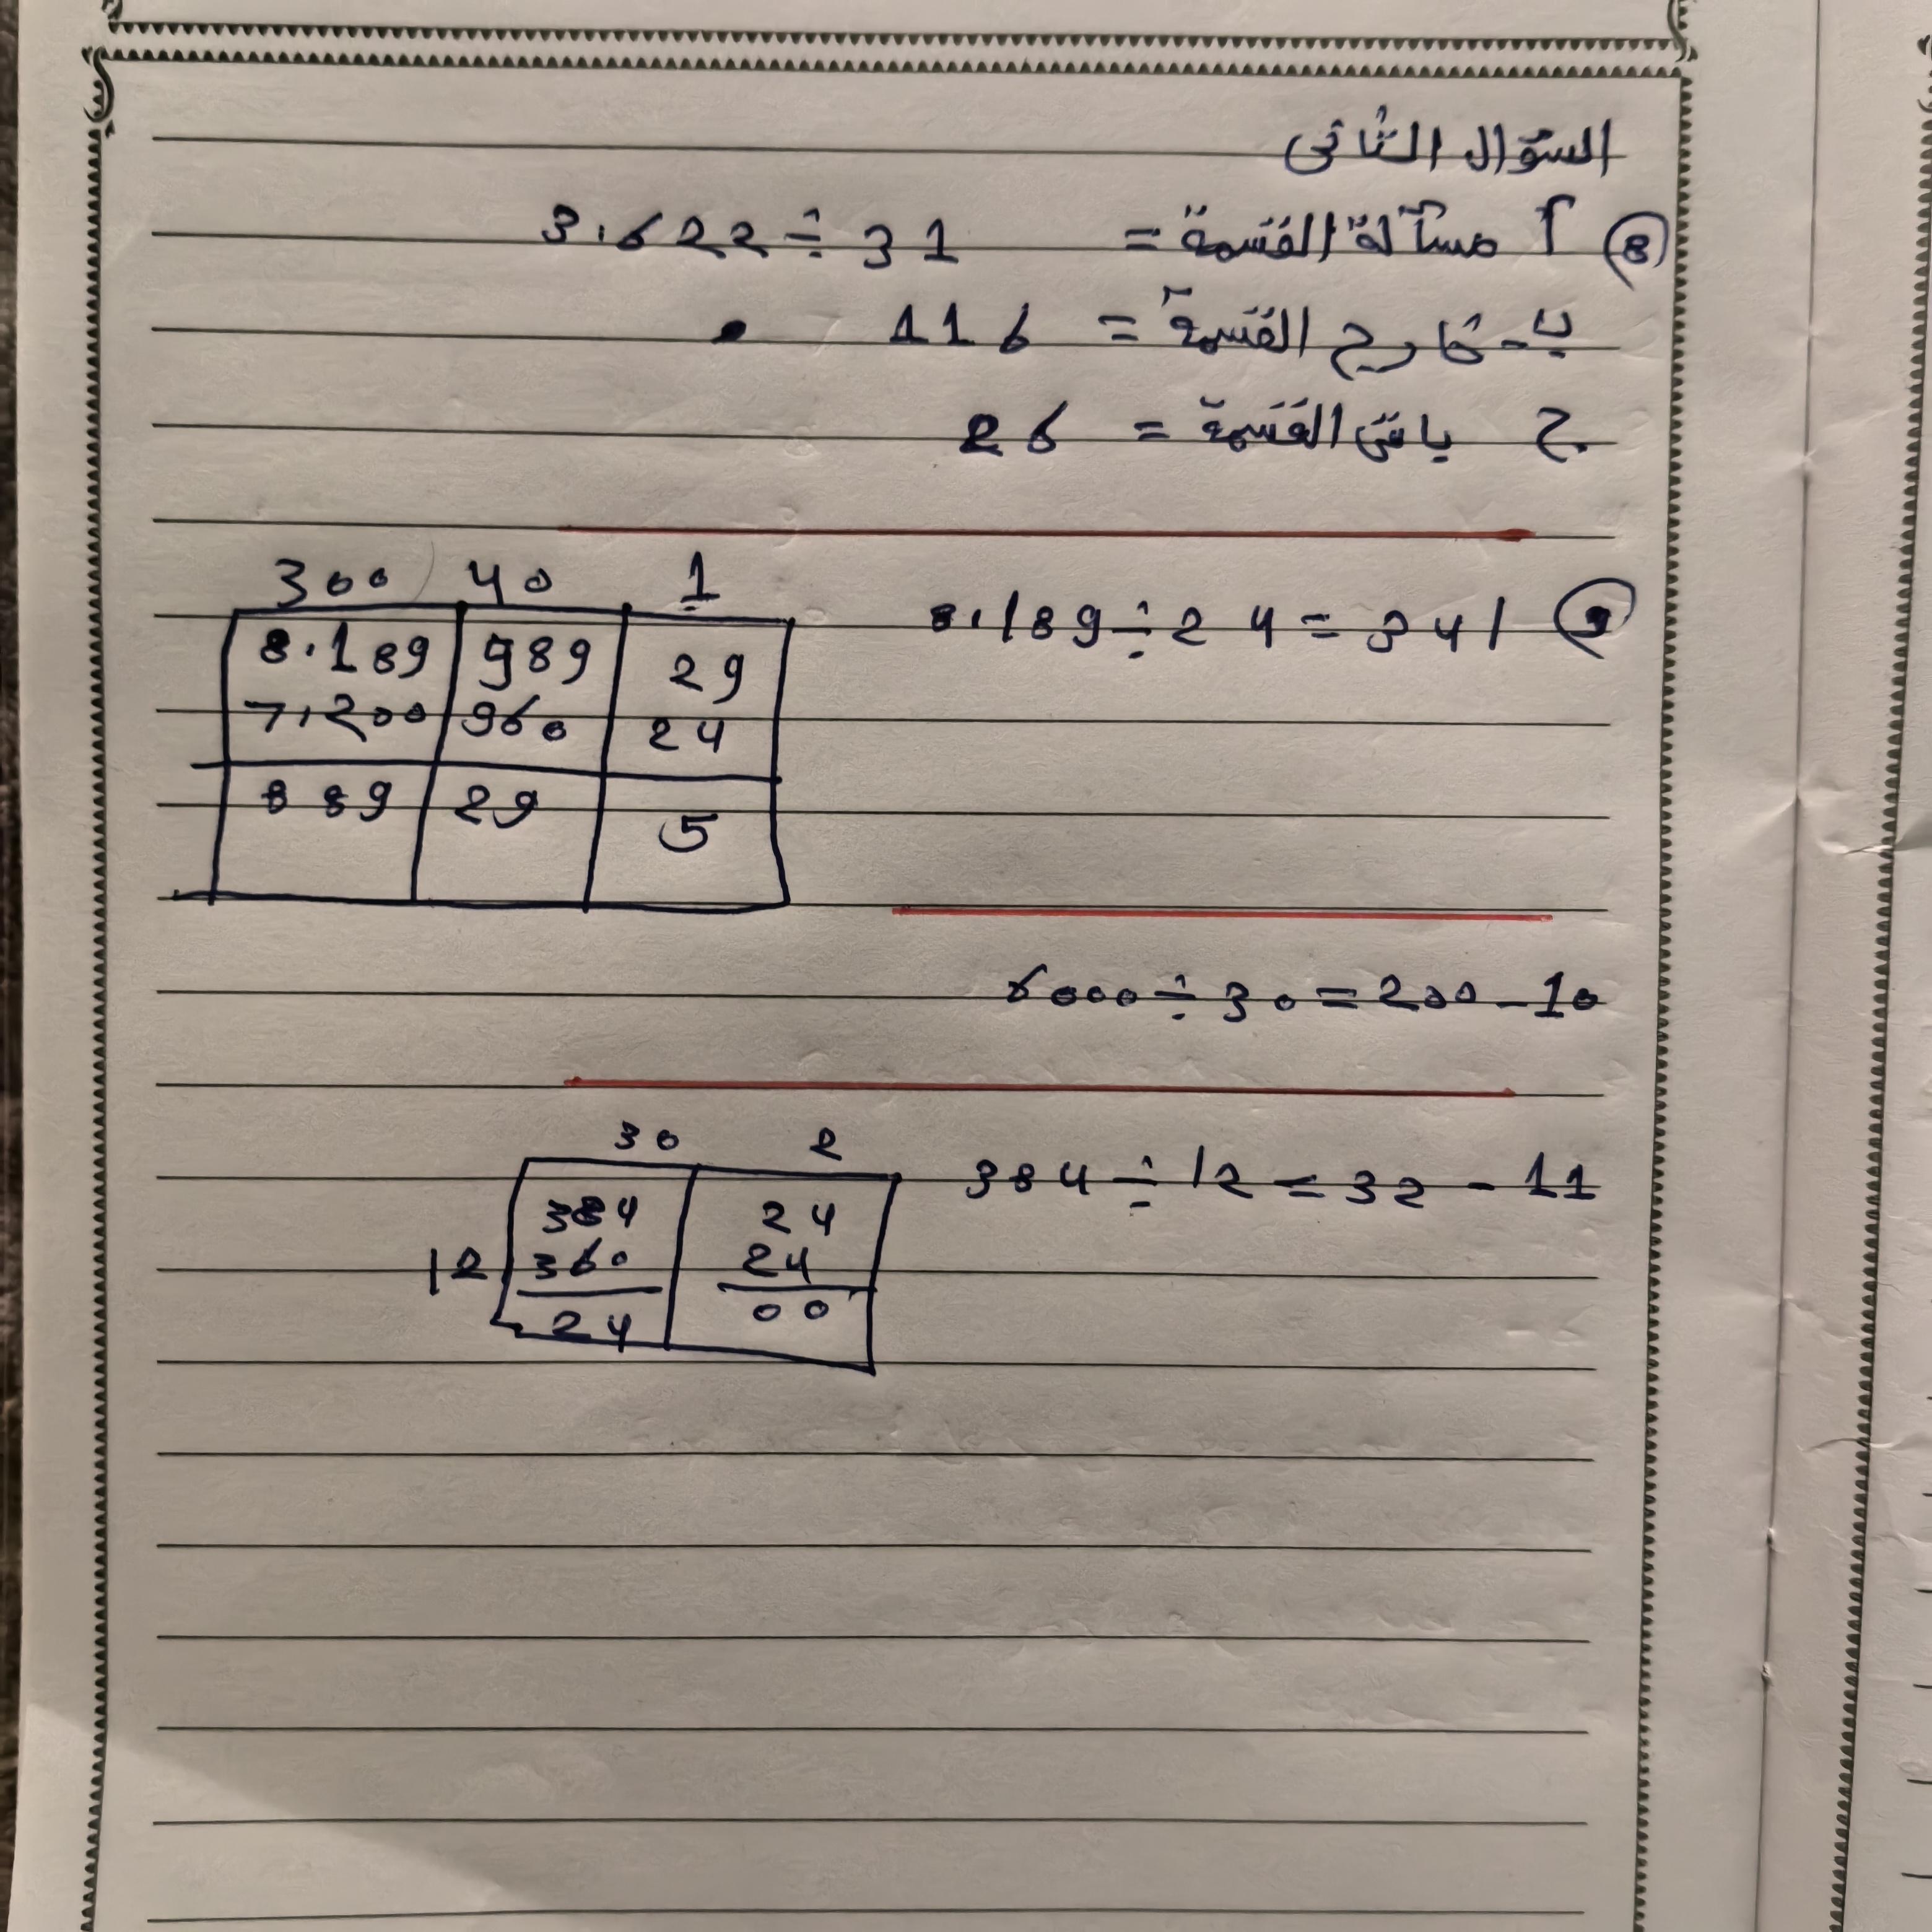 السؤال الثانى
8 أ مسألة القسمة = 3,622 ÷ 31
ب - خارج القسمة = 116
ج باقى القسمة = 26
9 8,189 ÷ 24 = 341
300 40 1
8,189 989 29
7,200 960 24
889 29 5
6000 ÷ 30 = 200 - 10
384 ÷ 12 = 32 - 11
30 2
384 24
12 360 24
24 00